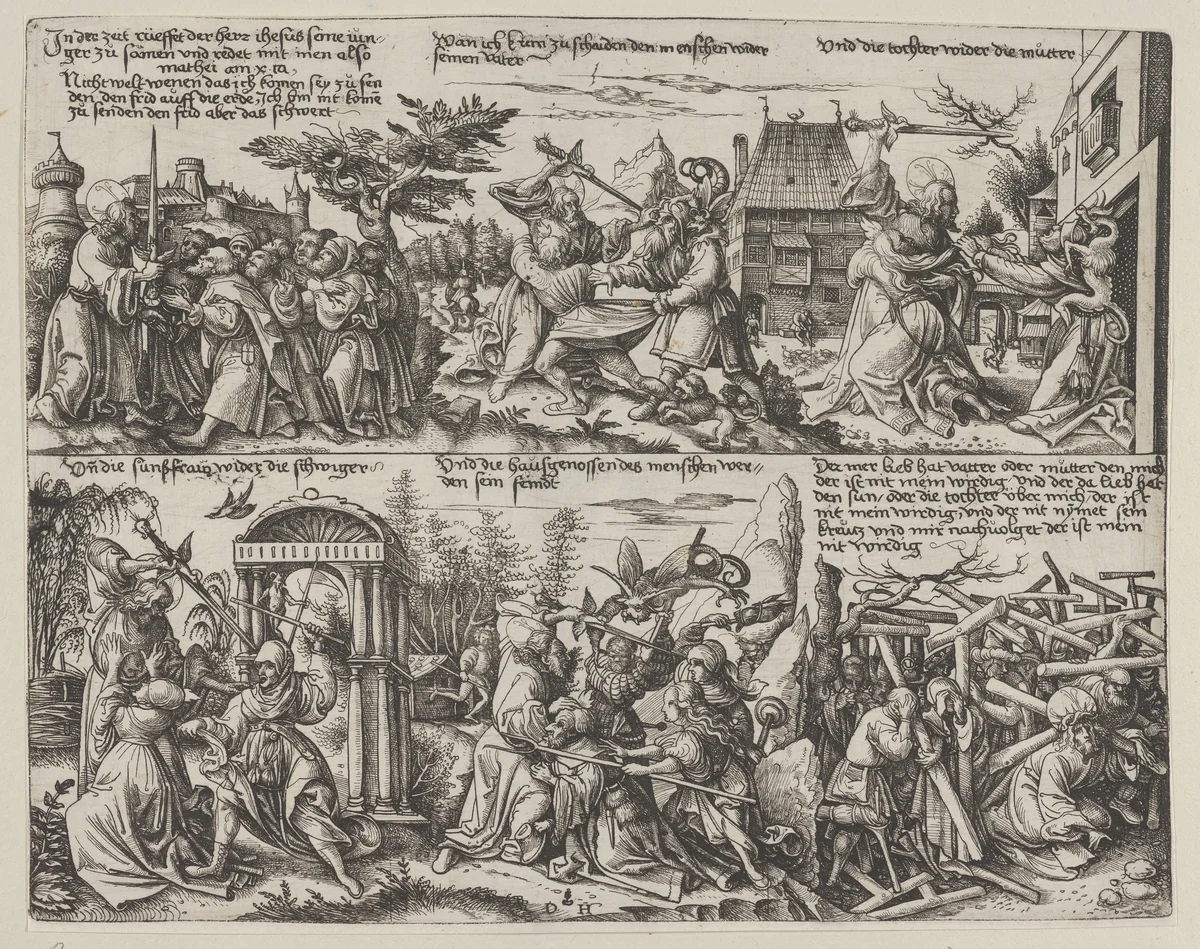 In der zeit rüeffet der herr ihesüs seine iün-
ger zü samen und redet mit inen also
mathei am x ca,
Nicht welt wenen das ich komen sey zü sen
den den frid auff die erde, Ich bin nit kome
zü senden den frid aber das schwert
Wan ich küm zü schaiden den menschen wider
seinen vater
Und die tochter wider die mütter
Uñ die sunßfraw wider die schwiger
Und die hausgenossen des menschen wer-
den sein feindt
Der mer lieb hat vatter oder mütter den mich
der ist nit mein wirdig, und der da lieb hat
den sun/ oder die tochter über mich, der ist
nit mein wirdig, und der nit nymet sein
kreutz und mir nachvolget der ist mein
nit wirdig
D H